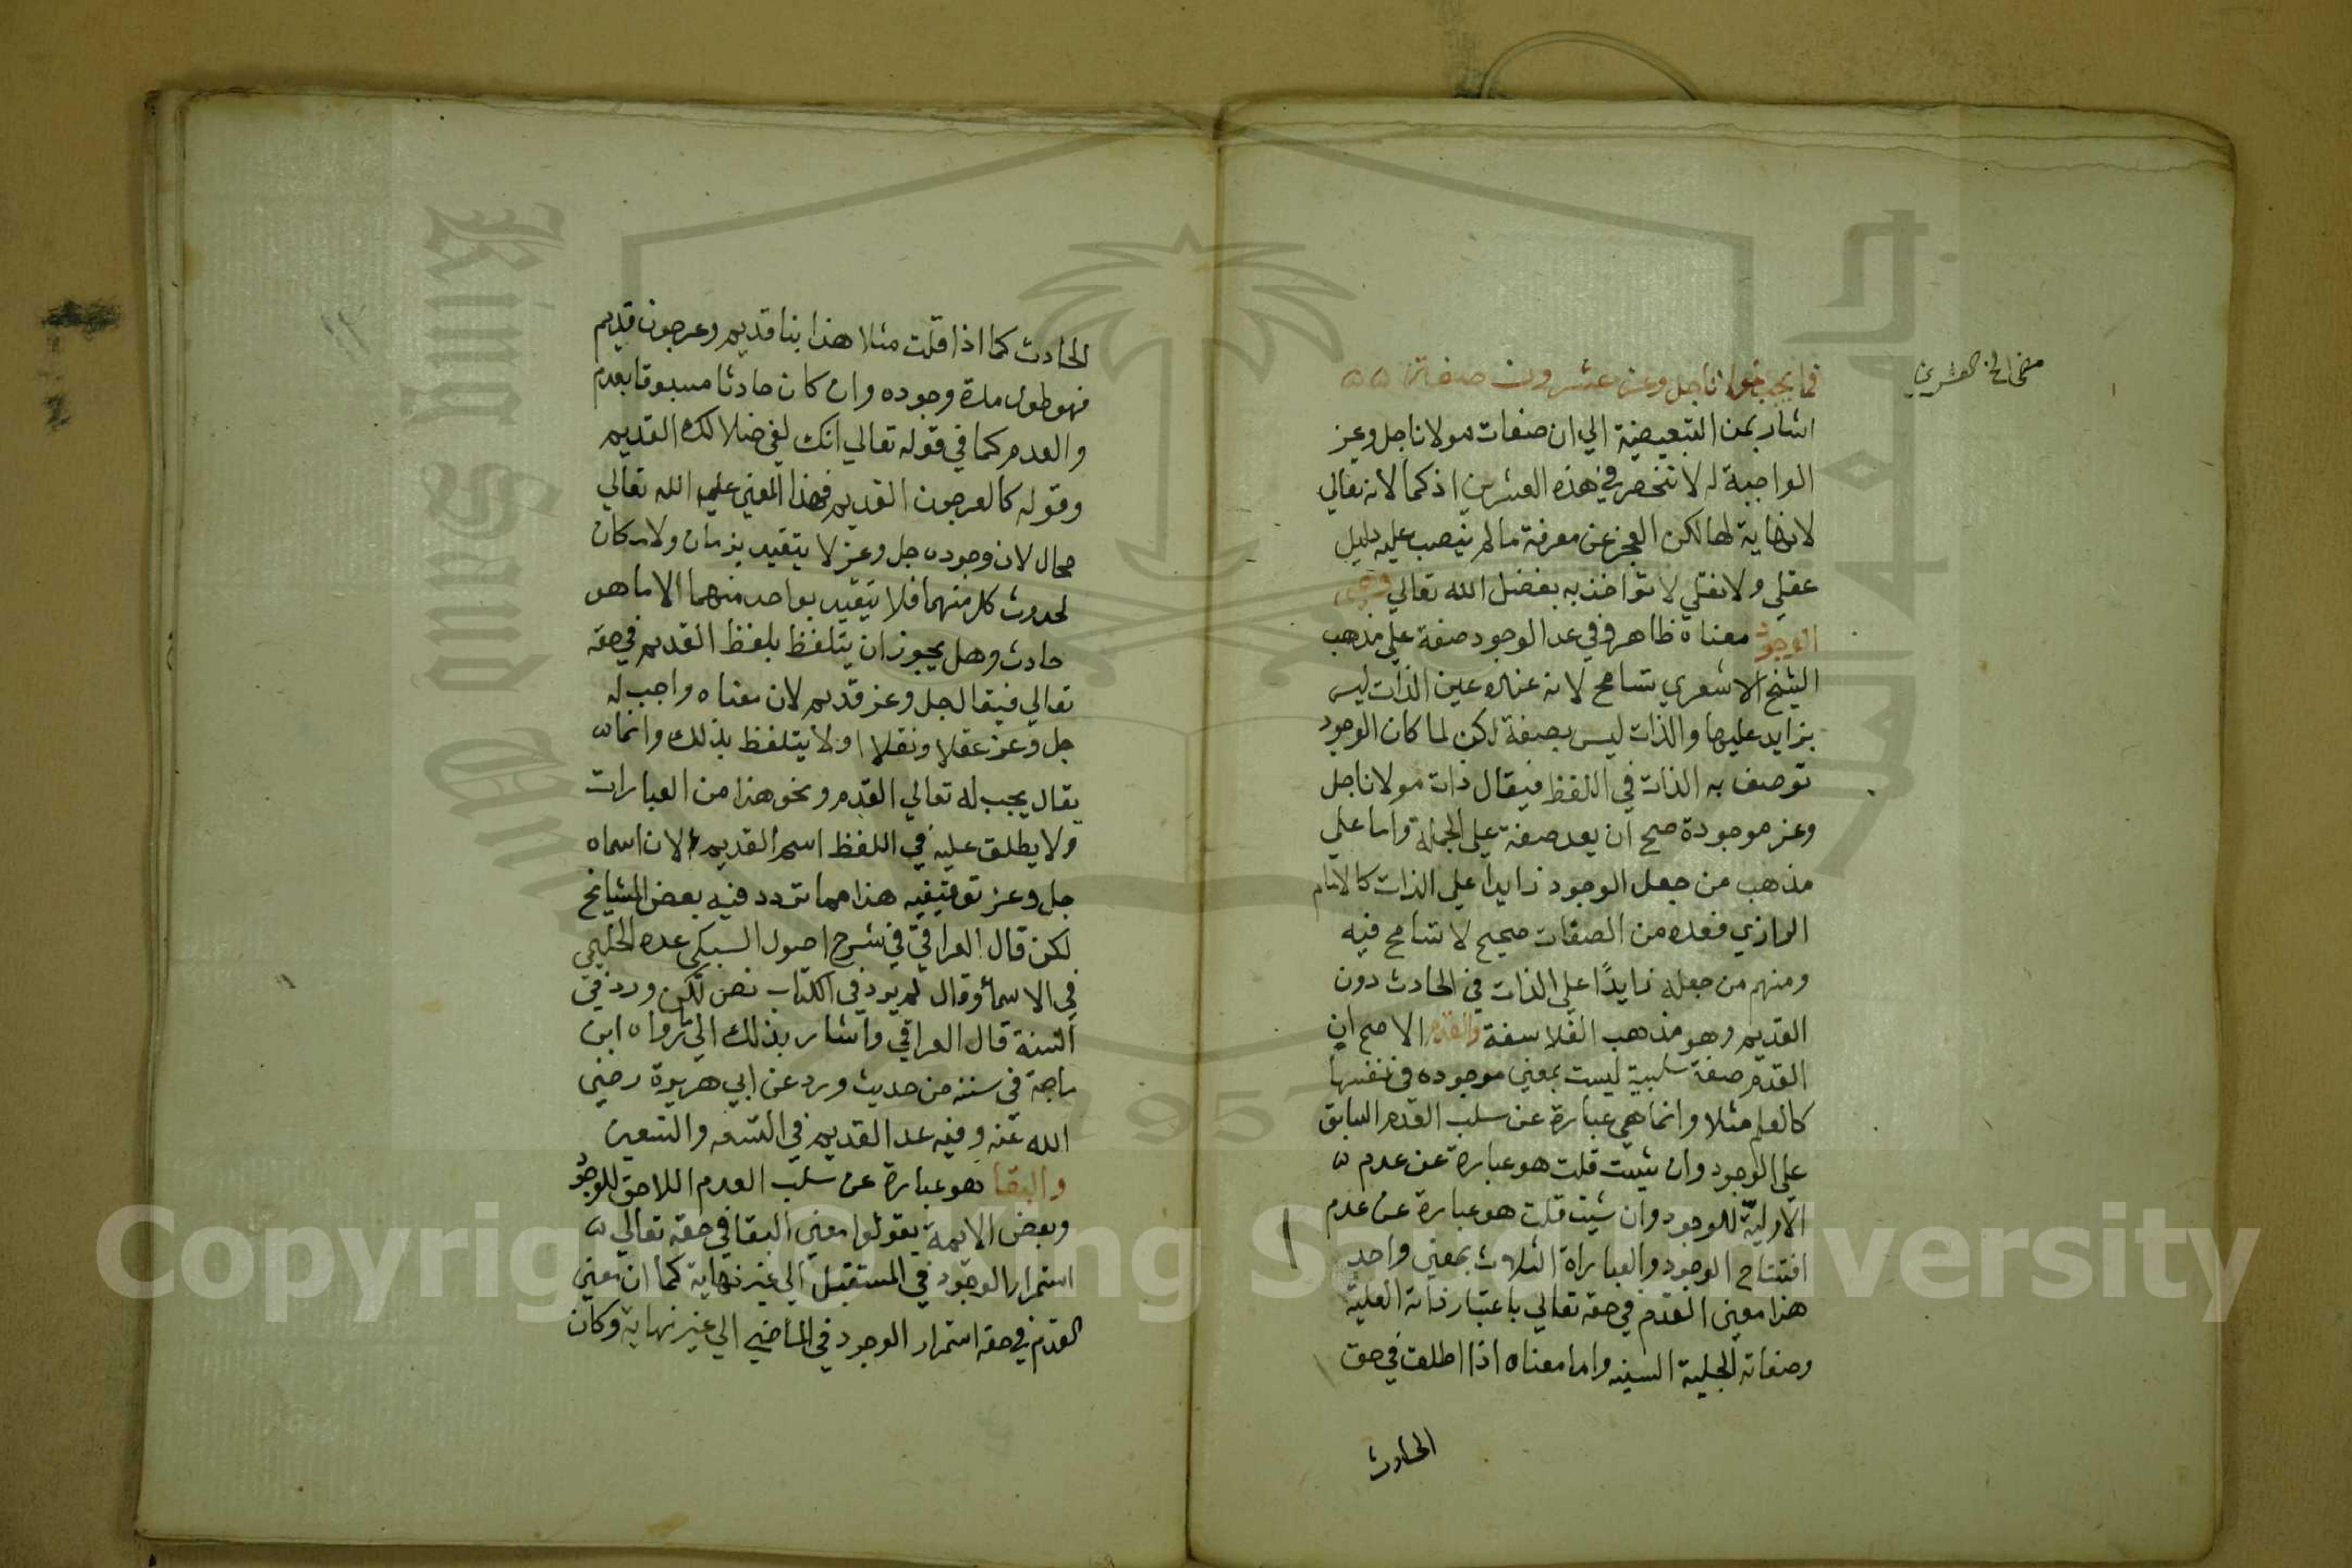 فما يجب لمولانا جل وعز عشرون صفة
اشار بمن التبعيضية الي ان صفات مولانا جل وعز
الواجبة له لا تنحصر في هذه العشرين اذ كمالاته تعالي
لا نهاية لها لكن العجز عن معرفة ما لم ينصب عليه دليل
عقلي ولا نقلي لا نؤاخذ به بفضل الله تعالي
الوجود معناه ظاهر وفي عد الوجود صفة علي مذهب
الشيخ الاشعري تسامح لانه عنده عين الذات ليس
بزايد عليها والذات ليس بصفة لكن لما كان الوجود
توصف به الذات في اللفظ فيقال ذات مولانا جل
وعز موجودة صح ان يعد صفة علي الجملة واما علي
مذهب من جعل الوجود زايدا علي الذات كالامام
الرازي فعده من الصفات صحيح لا تسامح فيه
ومنهم من جعله زايدًا علي الذات في الحادث دون
القديم وهو مذهب الفلاسفة والقدم الاصح ان
القدم صفة سلبية ليست بمعني موجوده في نفسها
كالعلم مثلا وانما هي عبارة عن سلب العدم السابق
علي الوجود وان شيت قلت هو عبارة عن عدم
الاولية للوجود وان شيت قلت هو عبارة عن عدم
افتتاح الوجود والعباراة الثلاث بمعني واحد
هذا معني القدم في حقه تعالي باعتبار ذاته العلية
وصفاته الجلية السنيه واما معناه اذا اطلق في حق
الحادث
الحادث كما اذا قلت مثلا هذا بنا قديم وعرجون قديم
فهو طول مدة وجوده وان كان حادثا مسبوقا بعدم
والعدم كما في قوله تعالي انك لفي ضلالك القديم
وقوله كالعرجون القديم فهذا المعني علي الله تعالي
محال لان وجوده جل وعز لا يتقيد بزمان ولا مكان
لحدوث كل منهما فلا يتقيد بواحد منهما الا ما هو
حادث وهل يجوز ان يتلفظ بلفظ القديم في حقه
تعالي فيقال جل وعز قديم لان معناه واجب له
جل وعز عقلا ونقلا او لا يتلفظ بذلك وانما
يقال يجب له تعالي القدم ونحو هذا من العبارات
ولا يطلق عليه في اللفظ اسم القديم لان اسماه
جل وعز توقيفيه هذا مما تردد فيه بعض المشايخ
لكن قال العراقي في شرح اصول السبكي عده الحليمي
في الاسما وقال لم يرد في الكتاب نص لكن ورد في
السنة قال العراقي واشار بذلك الي ما رواه ابن
ماجة في سننه من حديث ورد عن ابي هريرة رضي
الله عنه وفيه عد القديم في التسعه والتسعين
والبقا هو عبارة عن سلب العدم اللاحق للوجود
وبعض الايمة يقولوا معني البقا في حقه تعالي
استمرار الوجود في المستقبل الي غير نهاية كما ان معني
القدم في حقه استمرار الوجود في الماضي الي غير نهاية وكان
Copyright © King Saud University